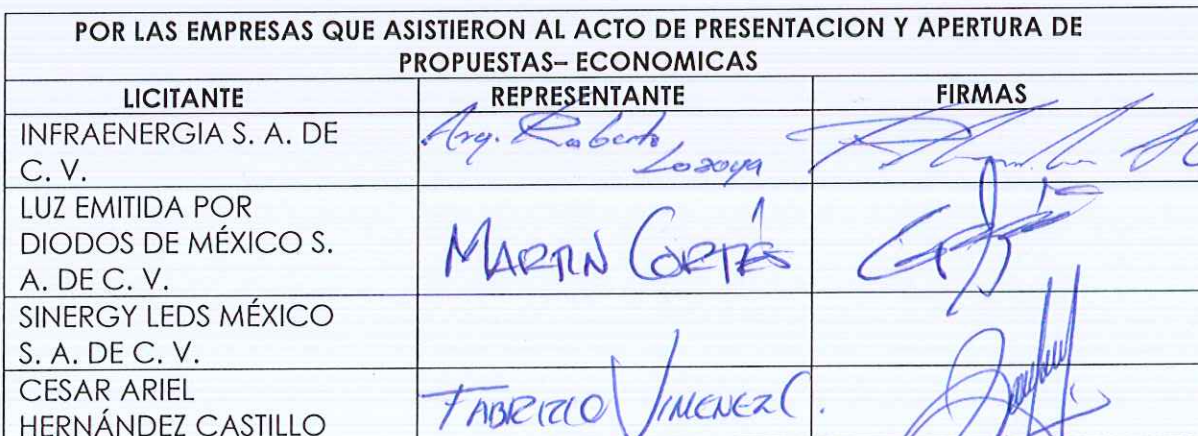 POR LAS EMPRESAS QUE ASISTIERON AL ACTO DE PRESENTACION Y APERTURA DE
PROPUESTAS– ECONOMICAS
LICITANTE REPRESENTANTE FIRMAS
INFRAENERGIA S. A. DE
C. V.
Arq. Roberto
Lozoya
LUZ EMITIDA POR
DIODOS DE MÉXICO S.
A. DE C. V.
MARTIN CORTÉS
SINERGY LEDS MÉXICO
S. A. DE C. V.
CESAR ARIEL
HERNÁNDEZ CASTILLO
FABRIZIO JIMENEZ C.